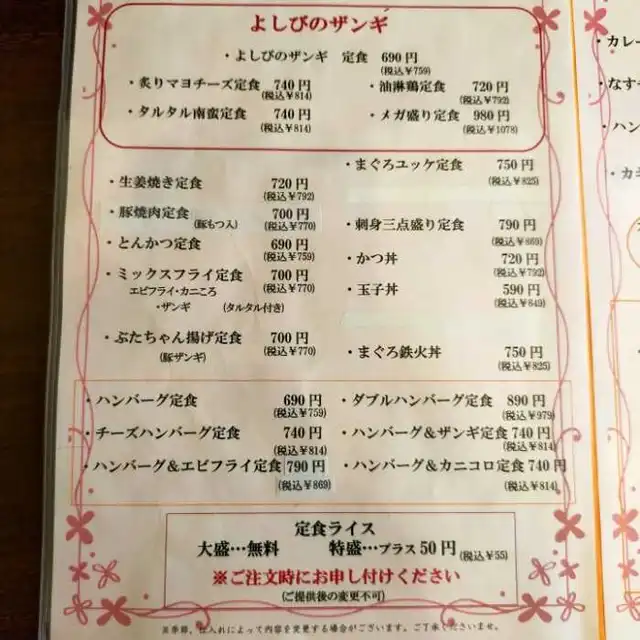 よしびのザンギ
・よしびのザンギ 定食 690円
(税込￥759)
・炙りマヨチーズ定食 740円
(税込￥814)
・油淋鶏定食 720円
(税込￥792)
・タルタル南蛮定食 740円
(税込￥814)
・メガ盛り定食 980円
(税込￥1078)
・生姜焼き定食 720円
(税込￥792)
・豚焼肉定食 700円
(豚もつ入) (税込￥770)
・とんかつ定食 690円
(税込￥759)
・ミックスフライ定食 700円
エビフライ・カニころ (税込￥770)
・ザンギ (タルタル付き)
・ぶたちゃん揚げ定食 700円
(豚ザンギ) (税込￥770)
・まぐろユッケ定食 750円
(税込￥825)
・刺身三点盛り定食 790円
(税込￥869)
・かつ丼 720円
(税込￥792)
・玉子丼 590円
(税込￥649)
・まぐろ鉄火丼 750円
(税込￥825)
・ハンバーグ定食 690円
(税込￥759)
・ダブルハンバーグ定食 890円
(税込￥979)
・チーズハンバーグ定食 740円
(税込￥814)
・ハンバーグ＆ザンギ定食 740円
(税込￥814)
・ハンバーグ＆エビフライ定食 790円
(税込￥869)
・ハンバーグ＆カニコロ定食 740円
(税込￥814)
定食ライス
大盛…無料 特盛…プラス50円 (税込￥55)
※ご注文時にお申し付けください
(ご提供後の変更不可)
※季節、仕入れによって内容を変更する場合がございます。ご了承くださいませ。
・カレー
・なす
・ハン
・カ